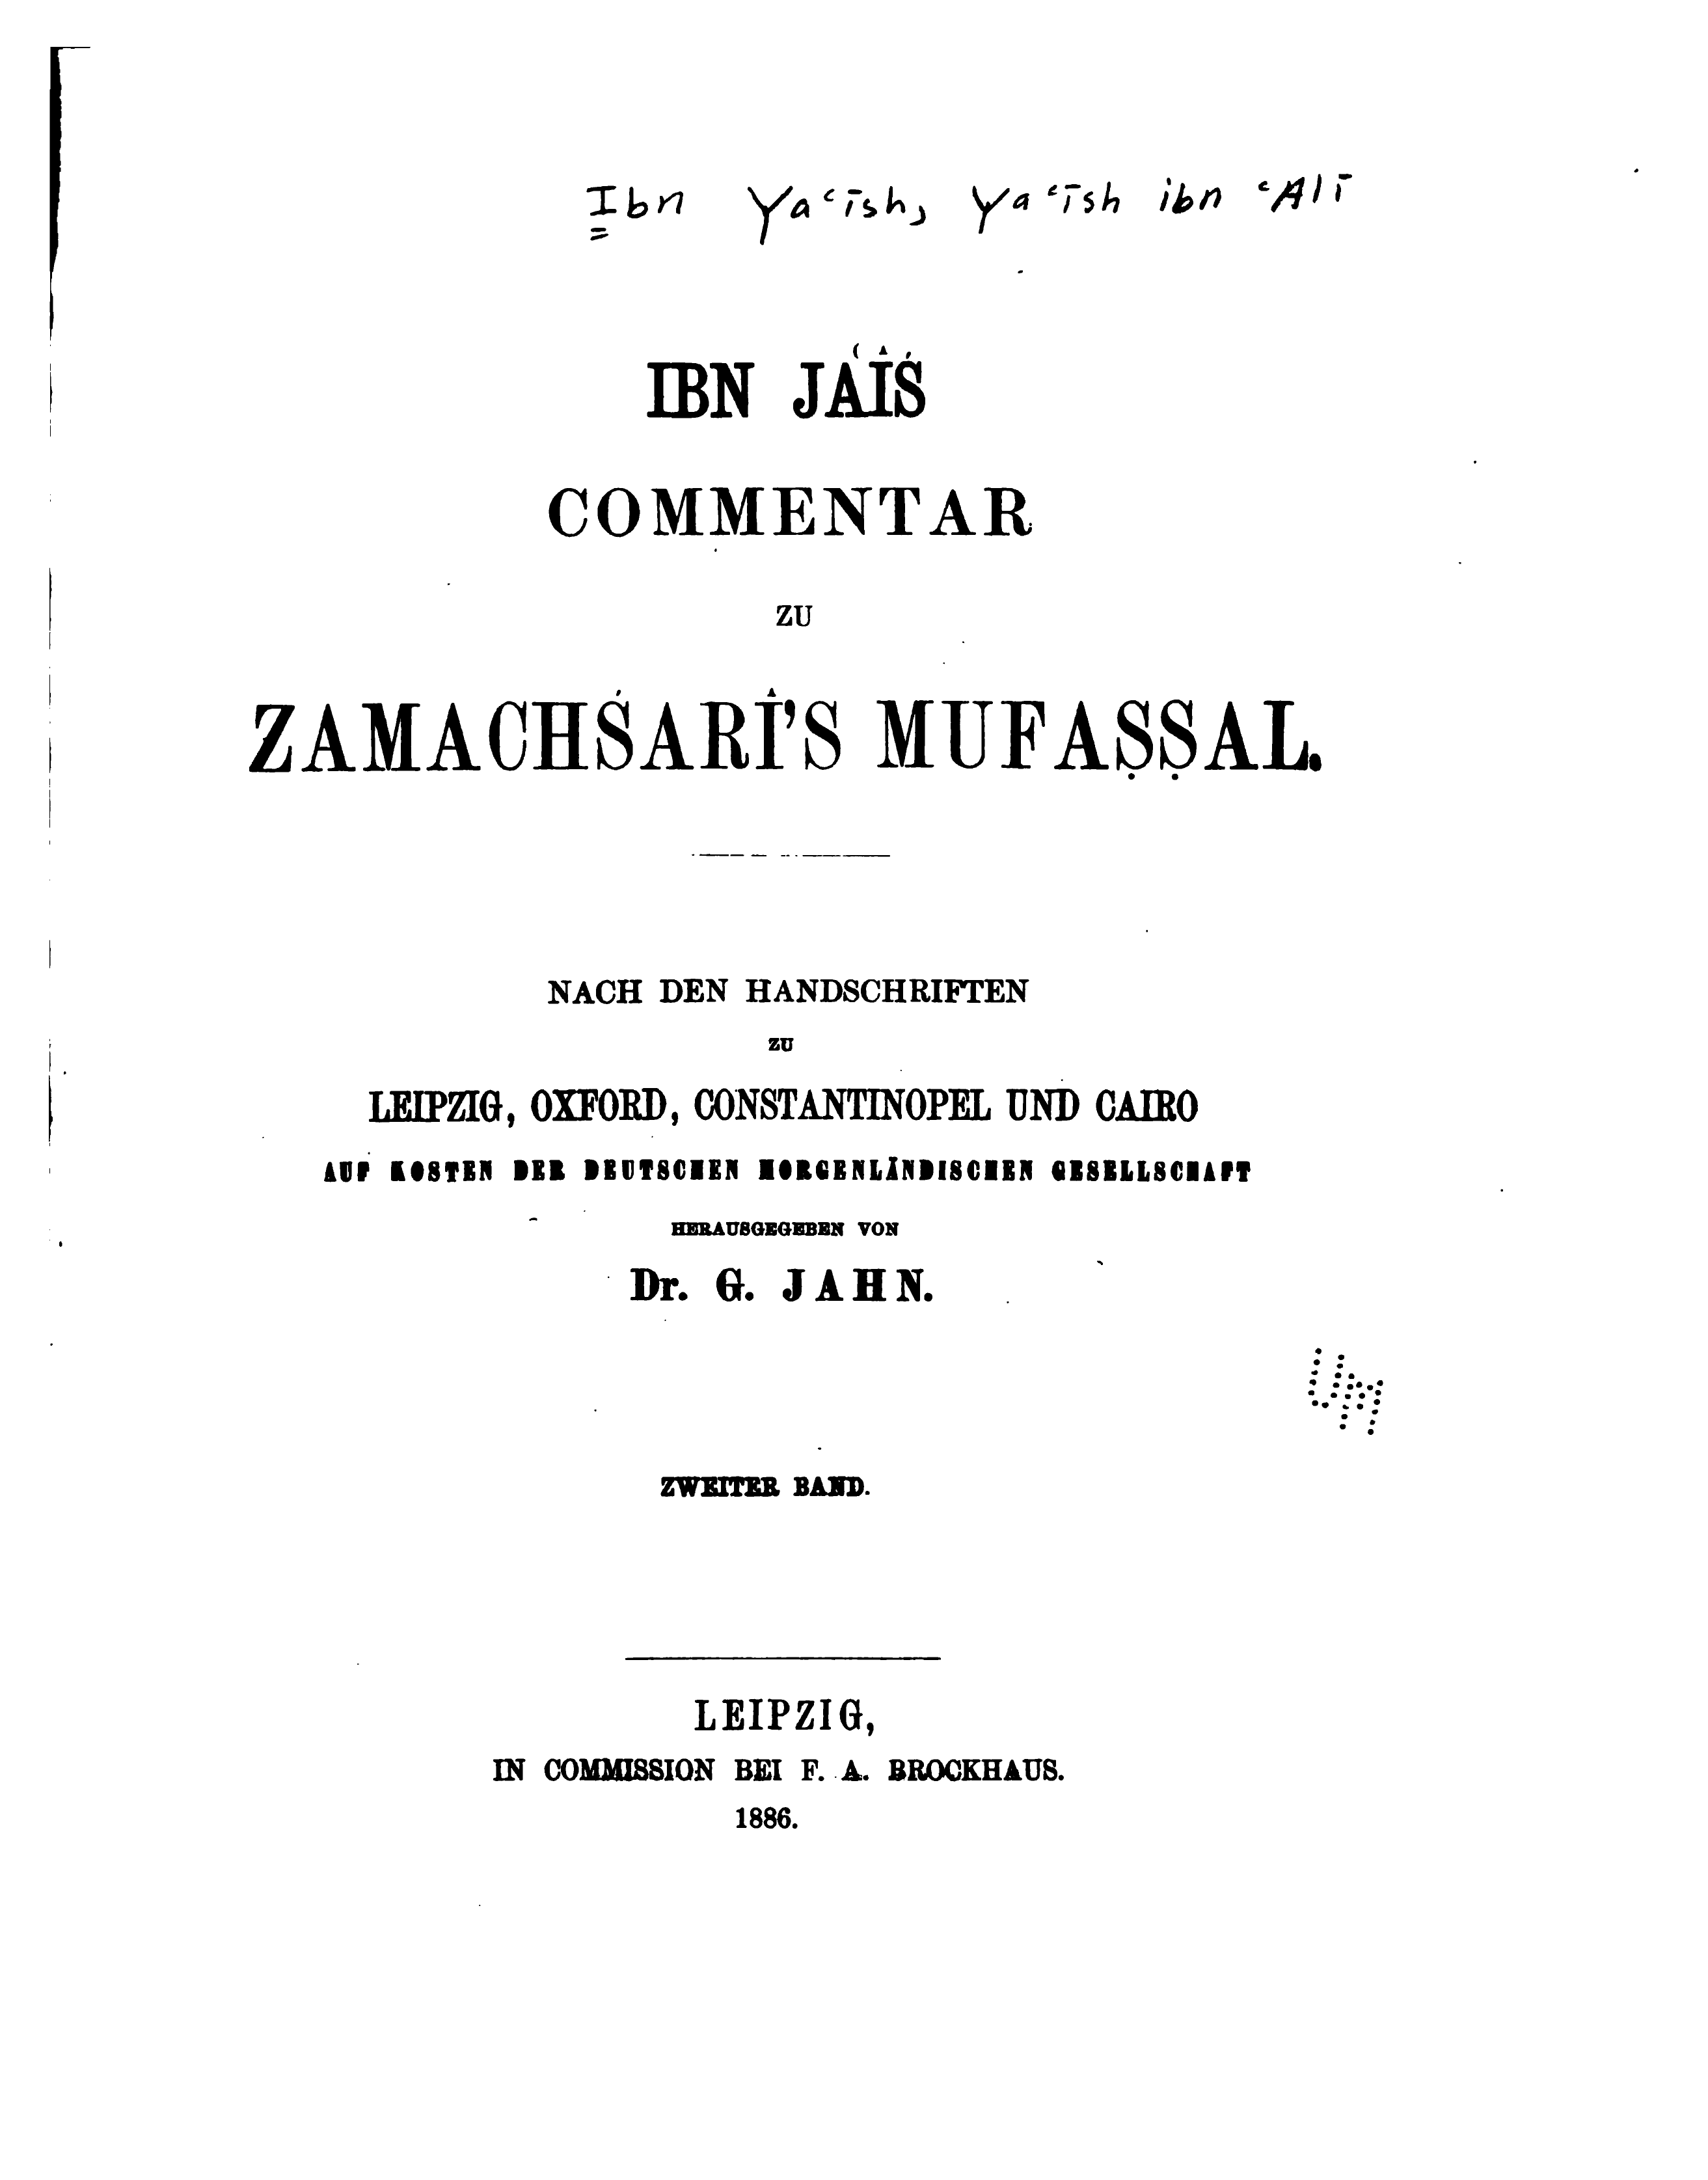 Ibn Yaʿīsh, Yaʿīsh ibn ʿAlī
IBN JAʿÎŚ
COMMENTAR
ZU
ZAMACHŚARÎ'S MUFAṢṢAL.
NACH DEN HANDSCHRIFTEN
ZU
LEIPZIG, OXFORD, CONSTANTINOPEL UND CAIRO
AUF KOSTEN DER DEUTSCHEN MORGENLÄNDISCHEN GESELLSCHAFT
HERAUSGEGEBEN VON
Dr. G. JAHN.
UM
ZWEITER BAND.
LEIPZIG,
IN COMMISSION BEI F. A. BROCKHAUS.
1886.